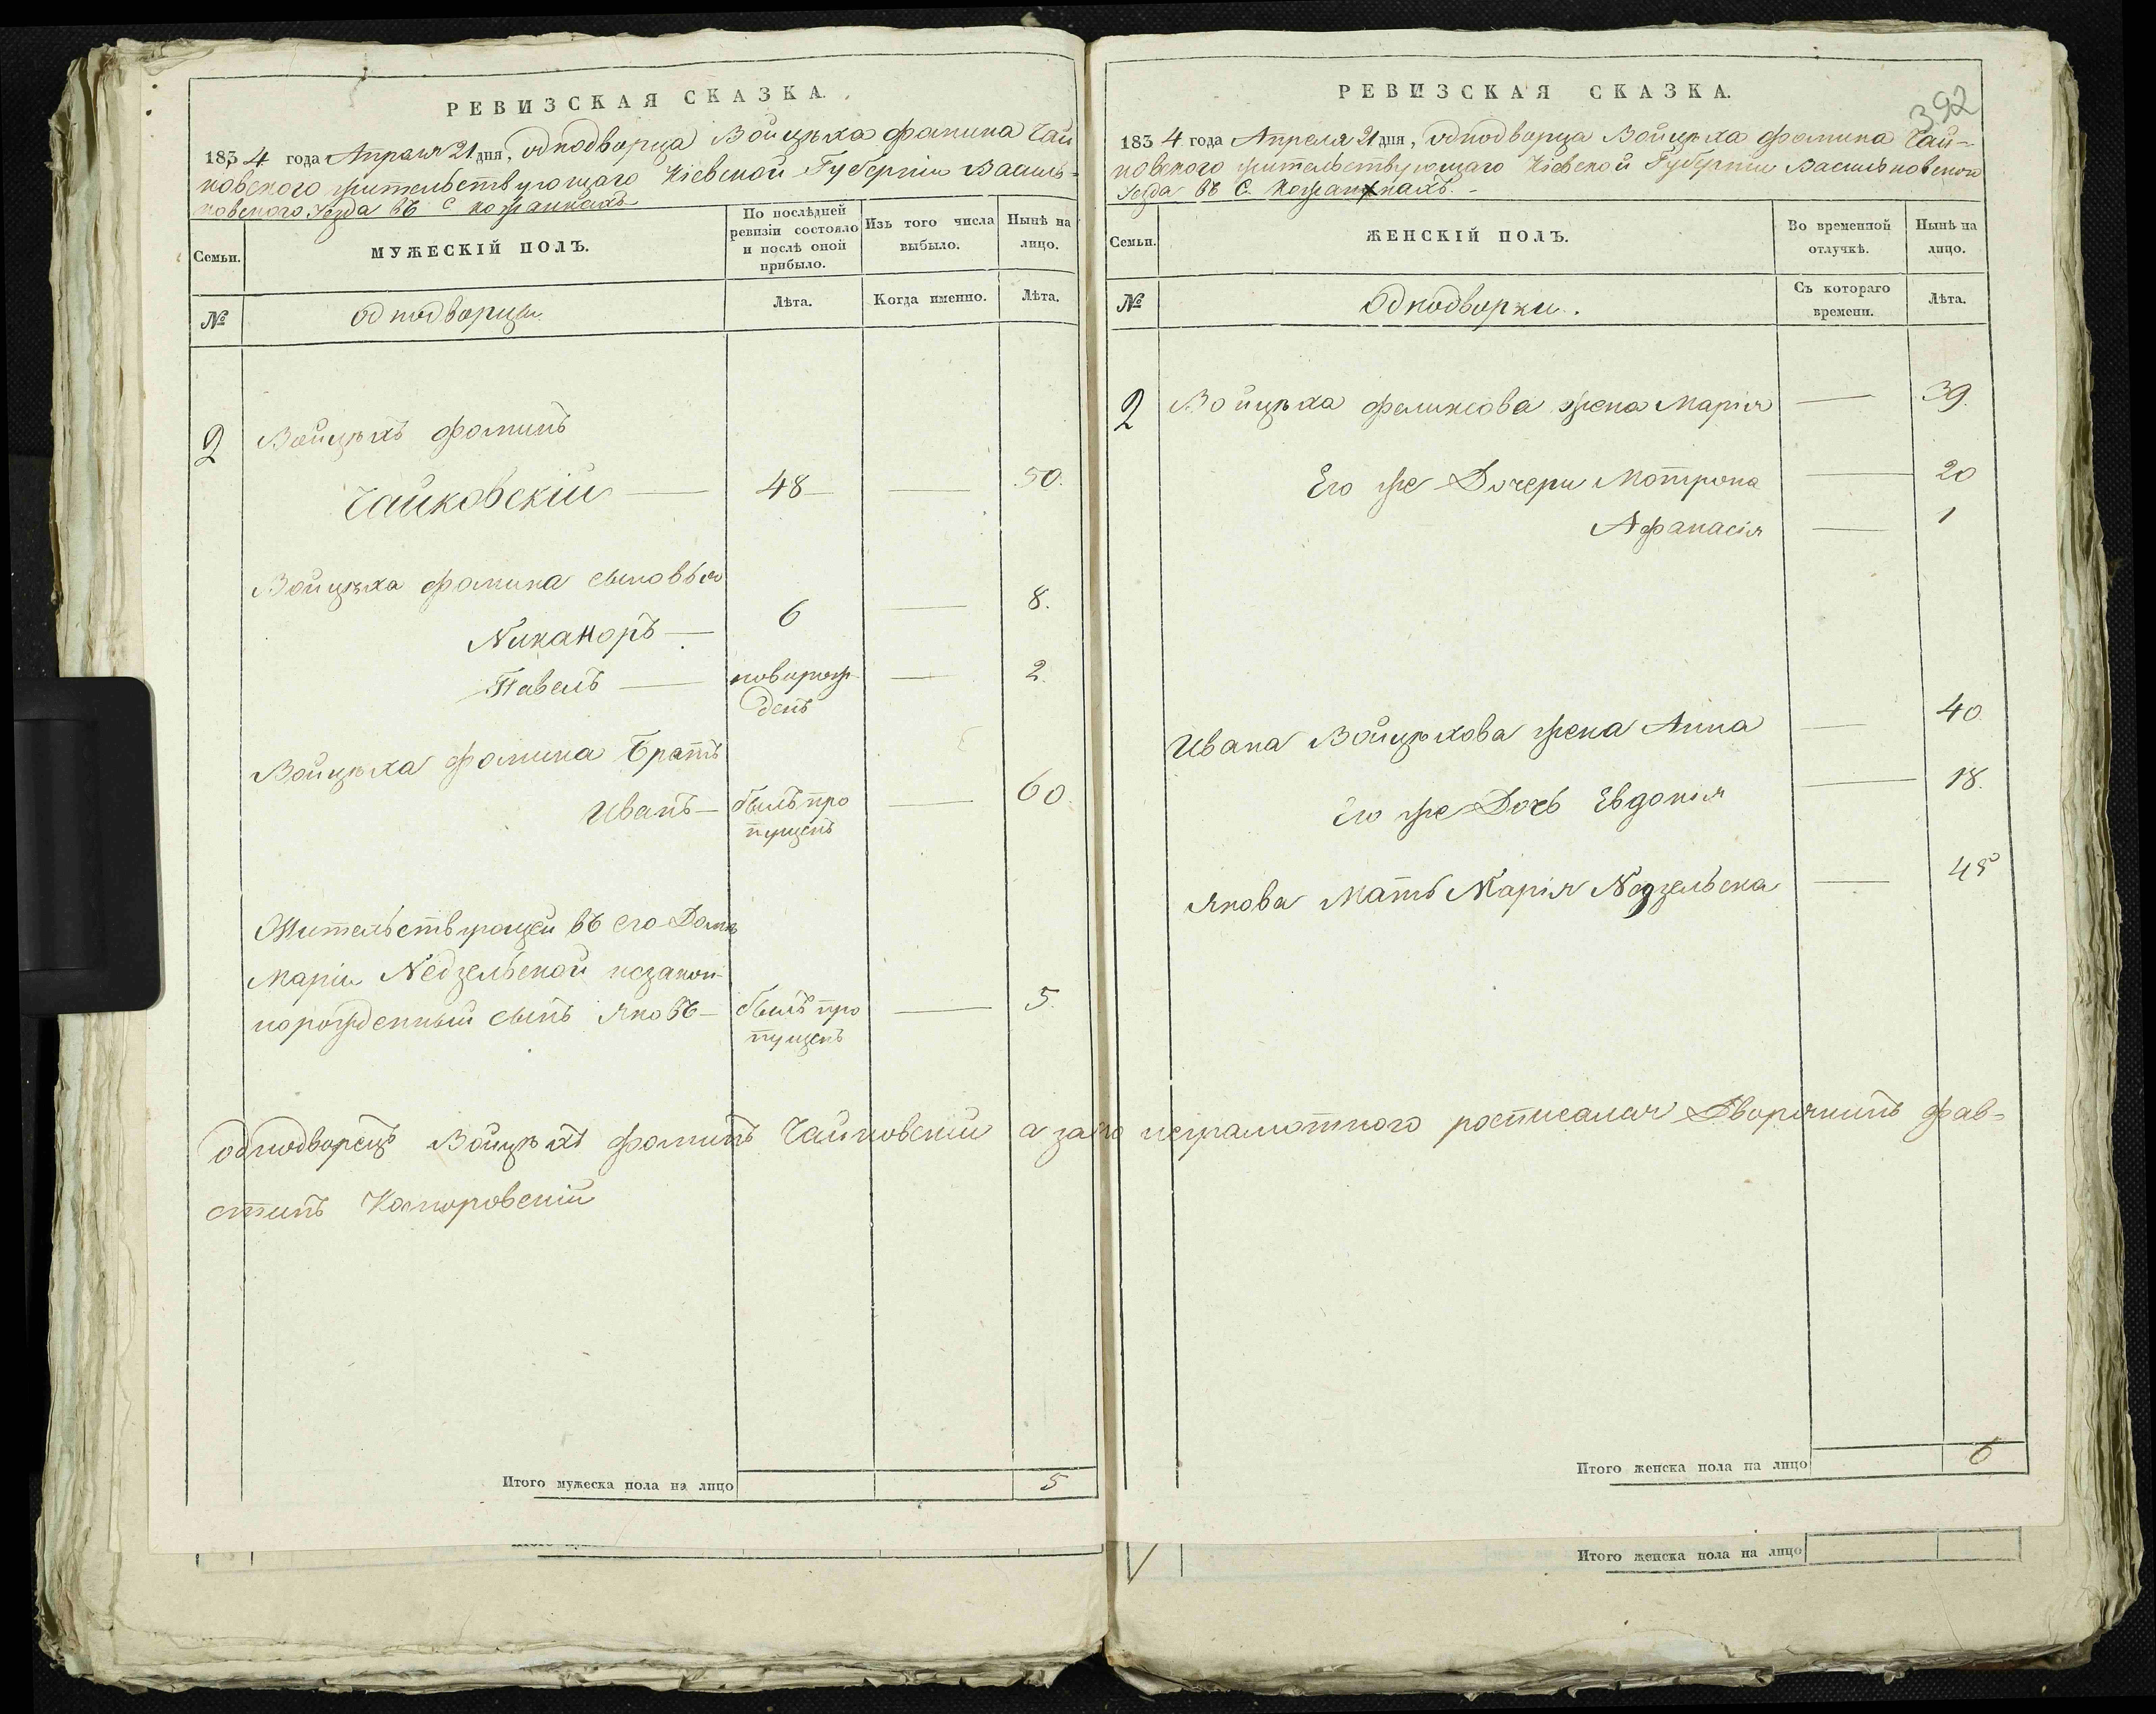 РЕВИЗСКАЯ СКАЗКА.
1834 года Апреля 21 дня, однодворца Войцѣха Фомина Чай
ковского жительствующаго Кіевской Губерніи Василь-
ковского Уезда въ с кожанкахъ
Семьи.
МУЖЕСКІЙ ПОЛЪ.
По послѣдней
ревизіи состояло
и послѣ оной
прибыло.
Изъ того числа
выбыло.
Нынѣ на
лицо.
№
однодворцы
Лѣта.
Когда именно.
Лѣта.
2
Войцѣхъ Фоминъ
Чайковскій — 48 — 50.
Войцѣха Фомина сыновья
Никаноръ — 6 — 8.
Павелъ — новорож — 2.
денъ
Войцѣха Фомина Братъ
Иванъ — былъ про — 60.
пущенъ
Жительствующей въ его Домѣ
Маріи Недзельской незакон-
норожденный сынъ Яковъ — былъ про — 5.
пущенъ
однодворецъ Войцѣхъ Фоминъ Чайковскій а за его неграмотного росписался Дворянинъ Фав-
стинъ
Итого мужеска пола на лицо 5
392
РЕВИЗСКАЯ СКАЗКА.
1834 года Апреля 21 дня, однодворца Войцѣха Фомина Чай-
ковского жительствующаго Кіевской Губерніи Васильковского
Уезда въ С. Кожанкахъ. -
Семьи.
ЖЕНСКІЙ ПОЛЪ.
Во временной
отлучкѣ.
Нынѣ на
лицо.
№
Однодворки.
Съ котораго
времени.
Лѣта.
2
Войцѣха жена Марія — 39.
Его же Дочери Мотрона — 20
Афанасія — 1
Ивана Войцѣхова жена Анна — 40.
Его же Дочь Евдокія — 18.
Якова Мать Марія Недзельска — 45
Итого женска пола на лицо 6
Итого женска пола на лицо